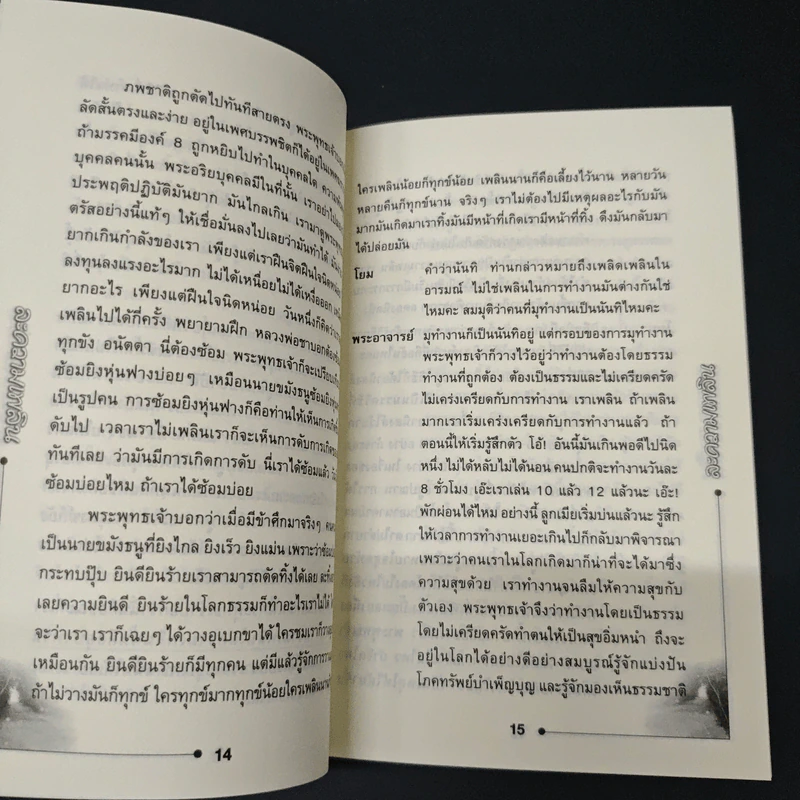 ภพชาติถูกตัดไปทันทีสายตรง พระพุทธเจ้าบอก
ลัดสั้นตรงและง่าย อยู่ในเพศบรรพชิตก็ได้อยู่ในเพศ
ถ้ามรรคมีองค์ 8 ถูกหยิบไปทำในบุคคลใด
บุคคลคนนั้น พระอริยบุคคลมีในที่นั้น เราอย่าไป
ประพฤติปฏิบัติมันยาก มันไกลเกิน เรามาดูพระ
ตรัสอย่างนี้แท้ๆ ให้เชื่อมั่นลงไปเลยว่ามันทำได้
ยากเกินกำลังของเรา เพียงแต่เราฝืนจิตฝืนใจนิดหน่อย
ลงทุนลงแรงอะไรมาก ไม่ได้เหนื่อยไม่ได้เหงื่อออก
ยากอะไร เพียงแต่ฝืนใจนิดหน่อย วันหนึ่งก็คิดว่า
เพลินไปได้กี่ครั้ง พยายามฝึก หลวงพ่อชาบอกต้อง
ทุกขัง อนัตตา นี่ต้องซ้อม พระพุทธเจ้าก็จะเปรียบ
ซ้อมยิงหุ่นฟางบ่อยๆ เหมือนนายขมังธนูซ้อมยิง
เป็นรูปคน การซ้อมยิงหุ่นฟางก็คือท่านให้เห็นการเกิด
ดับไป เวลาเราไม่เพลินเราก็จะเห็นการดับการเกิด
ทันทีเลย ว่ามันมีการเกิดการดับ นี่เราได้ซ้อมแล้ว
ซ้อมบ่อยไหม ถ้าเราได้ซ้อมบ่อย
พระพุทธเจ้าบอกว่าเมื่อมีข้าศึกมาจริงๆ
เป็นนายขมังธนูที่ยิงไกล ยิงเร็ว ยิงแม่น เพราะว่าซ้อม
กระทบปุ๊บ ยินดียินร้ายเราสามารถตัดทิ้งได้เลย
เลยความยินดี ยินร้ายในโลกธรรมก็ทำอะไรเราไม่ได้
จะว่าเรา เราก็เฉยๆ ได้วางอุเบกขาได้ ใครชมเราก็วาง
เหมือนกัน ยินดียินร้ายก็มีทุกคน แต่มีแล้วรู้จักการ
ถ้าไม่วางมันก็ทุกข์ ใครทุกข์มากทุกข์น้อยใครเพลิน
14
ใครเพลินน้อยก็ทุกข์น้อย เพลินนานก็คือเลี้ยงไว้นาน หลายวัน
หลายคืนก็ทุกข์นาน จริงๆ เราไม่ต้องไปมีเหตุผลอะไรกับมัน
มากมันเกิดมาเราทิ้งมันมีหน้าที่เกิดเรามีหน้าที่ทิ้ง ดึงมันกลับมา
ได้ปล่อยมัน
โยม คำว่านันทิ ท่านกล่าวหมายถึงเพลิดเพลินใน
อารมณ์ ไม่ใช่เพลินในการทำงานมันต่างกันใช่
ไหมคะ สมมุติว่าคนที่มุทำงานเป็นนันทิไหมคะ
พระอาจารย์ มุทำงานก็เป็นนันทิอยู่ แต่กรอบของการมุทำงาน
พระพุทธเจ้าก็วางไว้อยู่ว่าทำงานต้องโดยธรรม
ทำงานที่ถูกต้อง ต้องเป็นธรรมและไม่เครียดครัด
ไม่เคร่งเครียดกับการทำงาน เราเพลิน ถ้าเพลิน
มากเราเริ่มเคร่งเครียดกับการทำงานแล้ว ถ้า
ตอนนี้ให้เริ่มรู้สึกตัว โอ้! อันนี้มันเกินพอดีไปนิด
หนึ่ง ไม่ได้หลับไม่ได้นอน คนปกติจะทำงานวันละ
8 ชั่วโมง เอ๊ะเราเล่น 10 แล้ว 12 แล้วนะ เอ๊ะ!
พักผ่อนได้ไหม อย่างนี้ ลูกเมียเริ่มบ่นแล้วนะ รู้สึก
ให้เวลาการทำงานเยอะเกินไปก็กลับมาพิจารณา
เพราะว่าคนเราในโลกเกิดมาก็น่าที่จะได้มาซึ่ง
ความสุขด้วย เราทำงานจนลืมให้ความสุขกับ
ตัวเอง พระพุทธเจ้าจึงว่าทำงานโดยเป็นธรรม
โดยไม่เครียดครัดทำตนให้เป็นสุขอิ่มหนำ ถึงจะ
อยู่ในโลกได้อย่างดีอย่างสมบูรณ์รู้จักแบ่งปัน
โภคทรัพย์บำเพ็ญบุญ และรู้จักมองเห็นธรรมชาติ
15